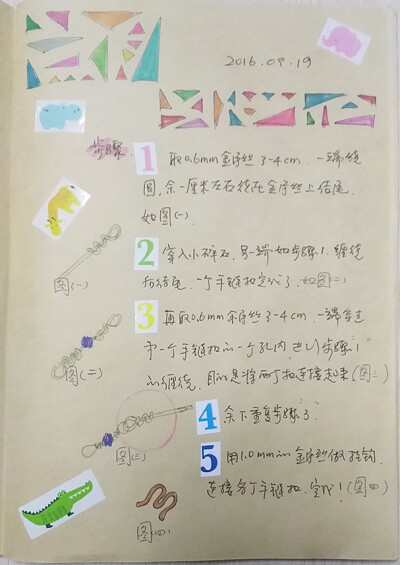 2016.09.19
步骤
1 取0.6mm金属丝3-4cm.一端绕
圆,余一厘米左右绕在金属丝上结尾.
如图(一)
2 穿入小碎石,另一端如步骤1.缠绕
后结尾.一个手链扣完成了.如图(二)
图(一)
3 再取0.6mm金属丝3-4cm.一端穿过
第一个手链扣的一个孔内,进行步骤"1"
图(二)
的缠绕.目的是将两个扣连接起来(图三)
4 余下重复步骤"3".
图(三)
5 用1.0mm金属丝做挂钩.
连接各个手链扣.完成!(图四)
图(四)